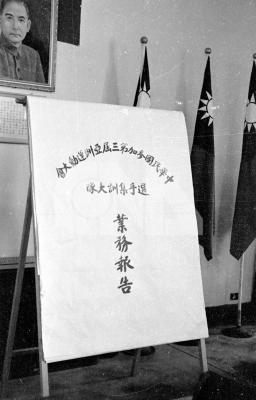 中華民國參加第三屆亞洲運動大會
選手集訓大隊
業務報告